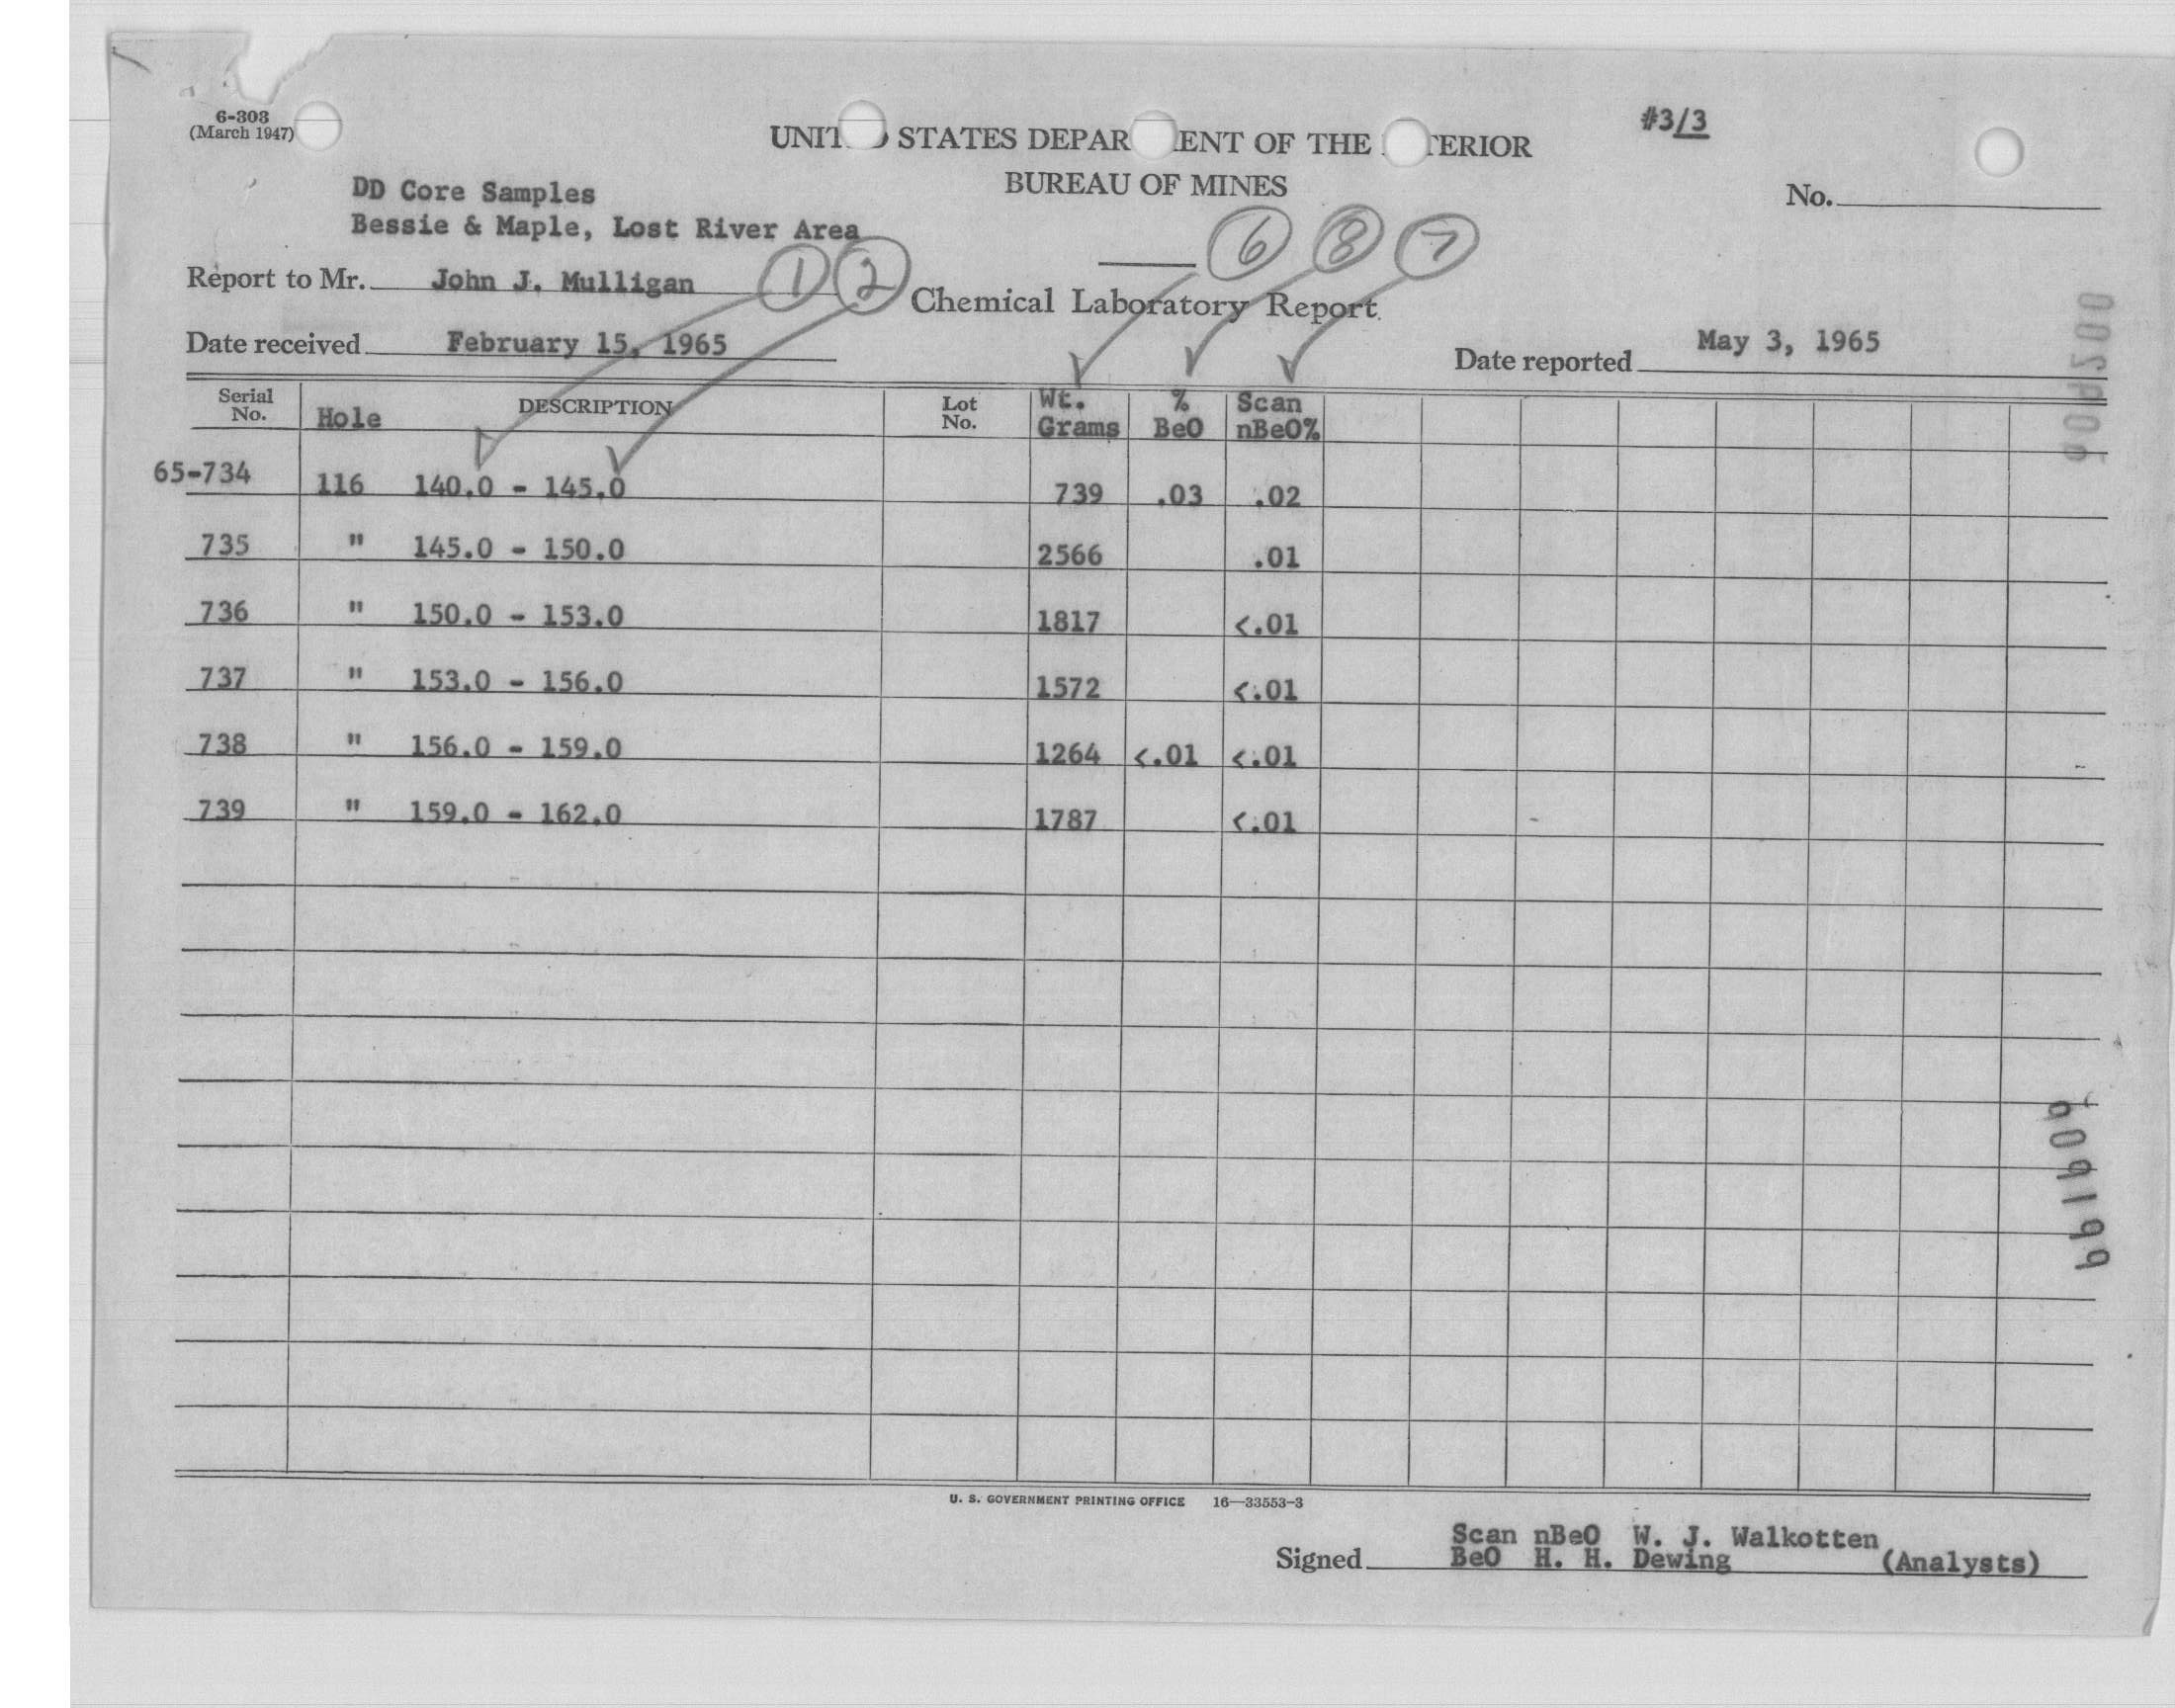 6-303
(March 1947)
#3/3
UNIT STATES DEPAR ENT OF THE TERIOR
BUREAU OF MINES
No.
DD Core Samples
Bessie & Maple, Lost River Area
1 2 6 8 7
Report to Mr. John J. Mulligan
Chemical Laboratory Report
Date received February 15, 1965
Date reported May 3, 1965
Serial No. Hole DESCRIPTION Lot No. Wt. Grams % BeO Scan nBeO%
65-734 116 140.0 - 145.0 739 .03 .02
735 " 145.0 - 150.0 2566 .01
736 " 150.0 - 153.0 1817 <.01
737 " 153.0 - 156.0 1572 <.01
738 " 156.0 - 159.0 1264 <.01 <.01
739 " 159.0 - 162.0 1787 <.01
U. S. GOVERNMENT PRINTING OFFICE 16—33553-3
Scan nBeO W. J. Walkotten
Signed BeO H. H. Dewing (Analysts)